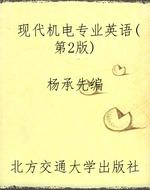 现代机电专业英语(
第2版)
杨承先编
北方交通大学出版社